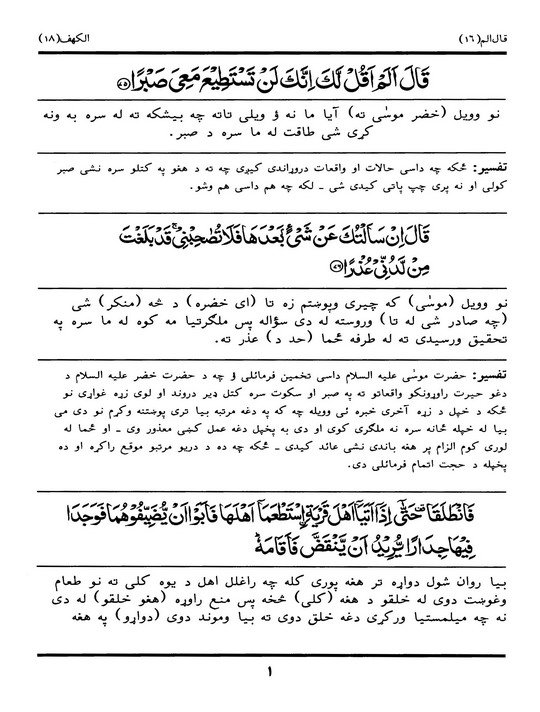 قال الم (١٦)
الکهف (١٨)
قَالَ اَلَمْ اَقُلْ لَّكَ اِنَّكَ لَنْ تَسْتَطِيْعَ مَعِيَ صَبْرًا ﴿٧٥﴾
نو وويل (خضر موسٰی ته) آيا ما نه ؤ ويلی تاته چه بيشکه ته له سره به ونه
کړی شی طاقت له ما سره د صبر.
تفسير: ځکه چه داسی حالات او واقعات دروړاندی کيږی چه ته د هغو په کتلو سره نشی صبر
کولی او نه پری چپ پاتی کيدی شی ـ لکه چه هم داسی هم وشو.
قَالَ اِنْ سَاَلْتُكَ عَنْ شَيْءٍۭ بَعْدَهَا فَلَا تُصٰحِبْنِيْ ۚ قَدْ بَلَغْتَ
مِنْ لَّدُنِّيْ عُذْرًا ﴿٧٦﴾
نو وويل (موسٰی) که چيری وپوښتم زه تا (ای خضره) د څه (منکر) شی
(چه صادر شی له تا) وروسته له دی سؤاله پس ملګرتيا مه کوه له ما سره په
تحقيق ورسيدی ته له طرفه ځما (حد د) عذر ته.
تفسير: حضرت موسٰی عليه السلام داسی تخمين فرمائلی ؤ چه د حضرت خضر عليه السلام د
دغو حيرت راوړونکو واقعاتو ته په صبر او سکوت سره کتل ډير دروند او لوی زړه غواړی نو
ځکه د خپل د زړه آخری خبره ئی وويله چه که په دغه مرتبه بيا تری پوښتنه وکړم نو دی می
بيا له خپله ځانه سره نه ملګری کوی او دی به پخپل دغه عمل کښی معذور وی ـ او ځما له
لوری کوم الزام پر هغه باندی نشی عائد کيدی ـ ځکه چه ده د دريو مرتبو موقع راکړه او ده
پخپله د حجت اتمام فرمائلی دی.
فَانْطَلَقَا ۥ حَتّٰٓى اِذَآ اَتَيَآ اَهْلَ قَرْيَةِ ۨاسْتَطْعَمَآ اَهْلَهَا فَاَبَوْا اَنْ يُّضَيِّفُوْهُمَا فَوَجَدَا
فِيْهَا جِدَارًا يُّرِيْدُ اَنْ يَّنْقَضَّ فَاَقَامَهٗ ۭ
بيا روان شول دواړه تر هغه پوری کله چه راغلل اهل د يوه کلی ته نو طعام
وغوښت دوی له خلقو د هغه (کلی) څخه پس منع راوړه (هغو خلقو) له دی
نه چه ميلمستيا ورکړی دغه خلق دوی ته بيا وموند دوی (دواړو) په هغه
١